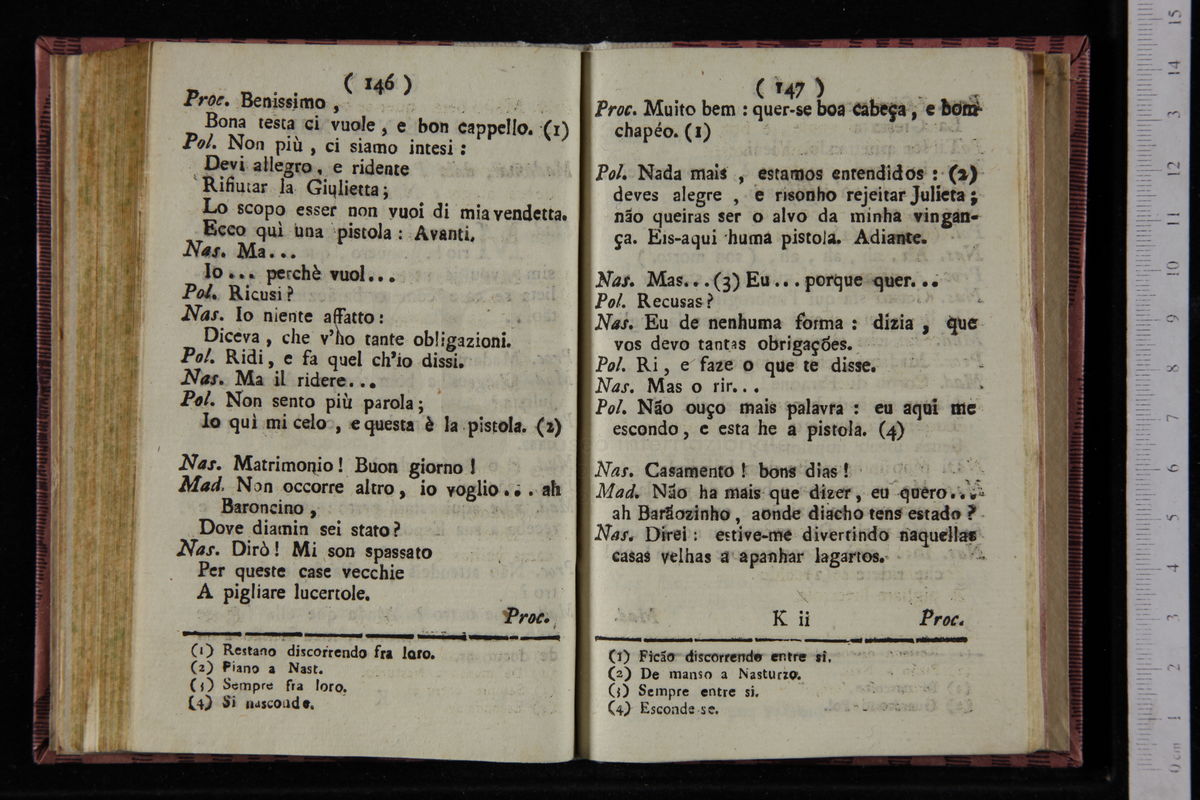 ( 146 )
Proc. Benissimo ,
Bona testa ci vuole , e bon cappello. (1)
Pol. Non più , ci siamo intesi :
Devi allegro , e ridente
Rifiutar la Giulietta ;
Lo scopo esser non vuoi di mia vendetta.
Ecco quì una pistola : Avanti.
Nas. Ma...
Io... perchè vuol...
Pol. Ricusi ?
Nas. Io niente affatto :
Diceva , che v'ho tante obligazioni.
Pol. Ridi , e fa quel ch'io dissi.
Nas. Ma il ridere...
Pol. Non sento più parola ;
Io quì mi celo , e questa è la pistola. (2)
Nas. Matrimonio ! Buon giorno !
Mad. Non occorre altro , io voglio... ah
Baroncino ,
Dove diamin sei stato ?
Nas. Dirò ! Mi son spassato
Per queste case vecchie
A pigliare lucertole.
Proc.
(1) Restano discorrendo fra loro.
(2) Piano a Nast.
(3) Sempre fra loro.
(4) Si nasconde.
( 147 )
Proc. Muito bem : quer-se boa cabeça , e bom
chapéo. (1)
Pol. Nada mais , estamos entendidos : (2)
deves alegre , e risonho rejeitar Julieta ;
não queiras ser o alvo da minha vingan-
ça. Eis-aqui huma pistola. Adiante.
Nas. Mas...(3) Eu... porque quer...
Pol. Recusas ?
Nas. Eu de nenhuma forma : dizia , que
vos devo tantas obrigações.
Pol. Ri , e faze o que te disse.
Nas. Mas o rir...
Pol. Não ouço mais palavra : eu aqui me
escondo , e esta he a pistola. (4)
Nas. Casamento ! bons dias !
Mad. Não ha mais que dizer , eu quero...
ah Barãozinho , aonde diacho tens estado ?
Nas. Direi : estive-me divertindo naquellas
casas velhas a apanhar lagartos.
K ii Proc.
(1) Ficão discorrendo entre si.
(2) De manso a Nasturzo.
(3) Sempre entre si.
(4) Esconde se.
0 cm 1 2 3 4 5 6 7 8 9 10 11 12 13 14 15